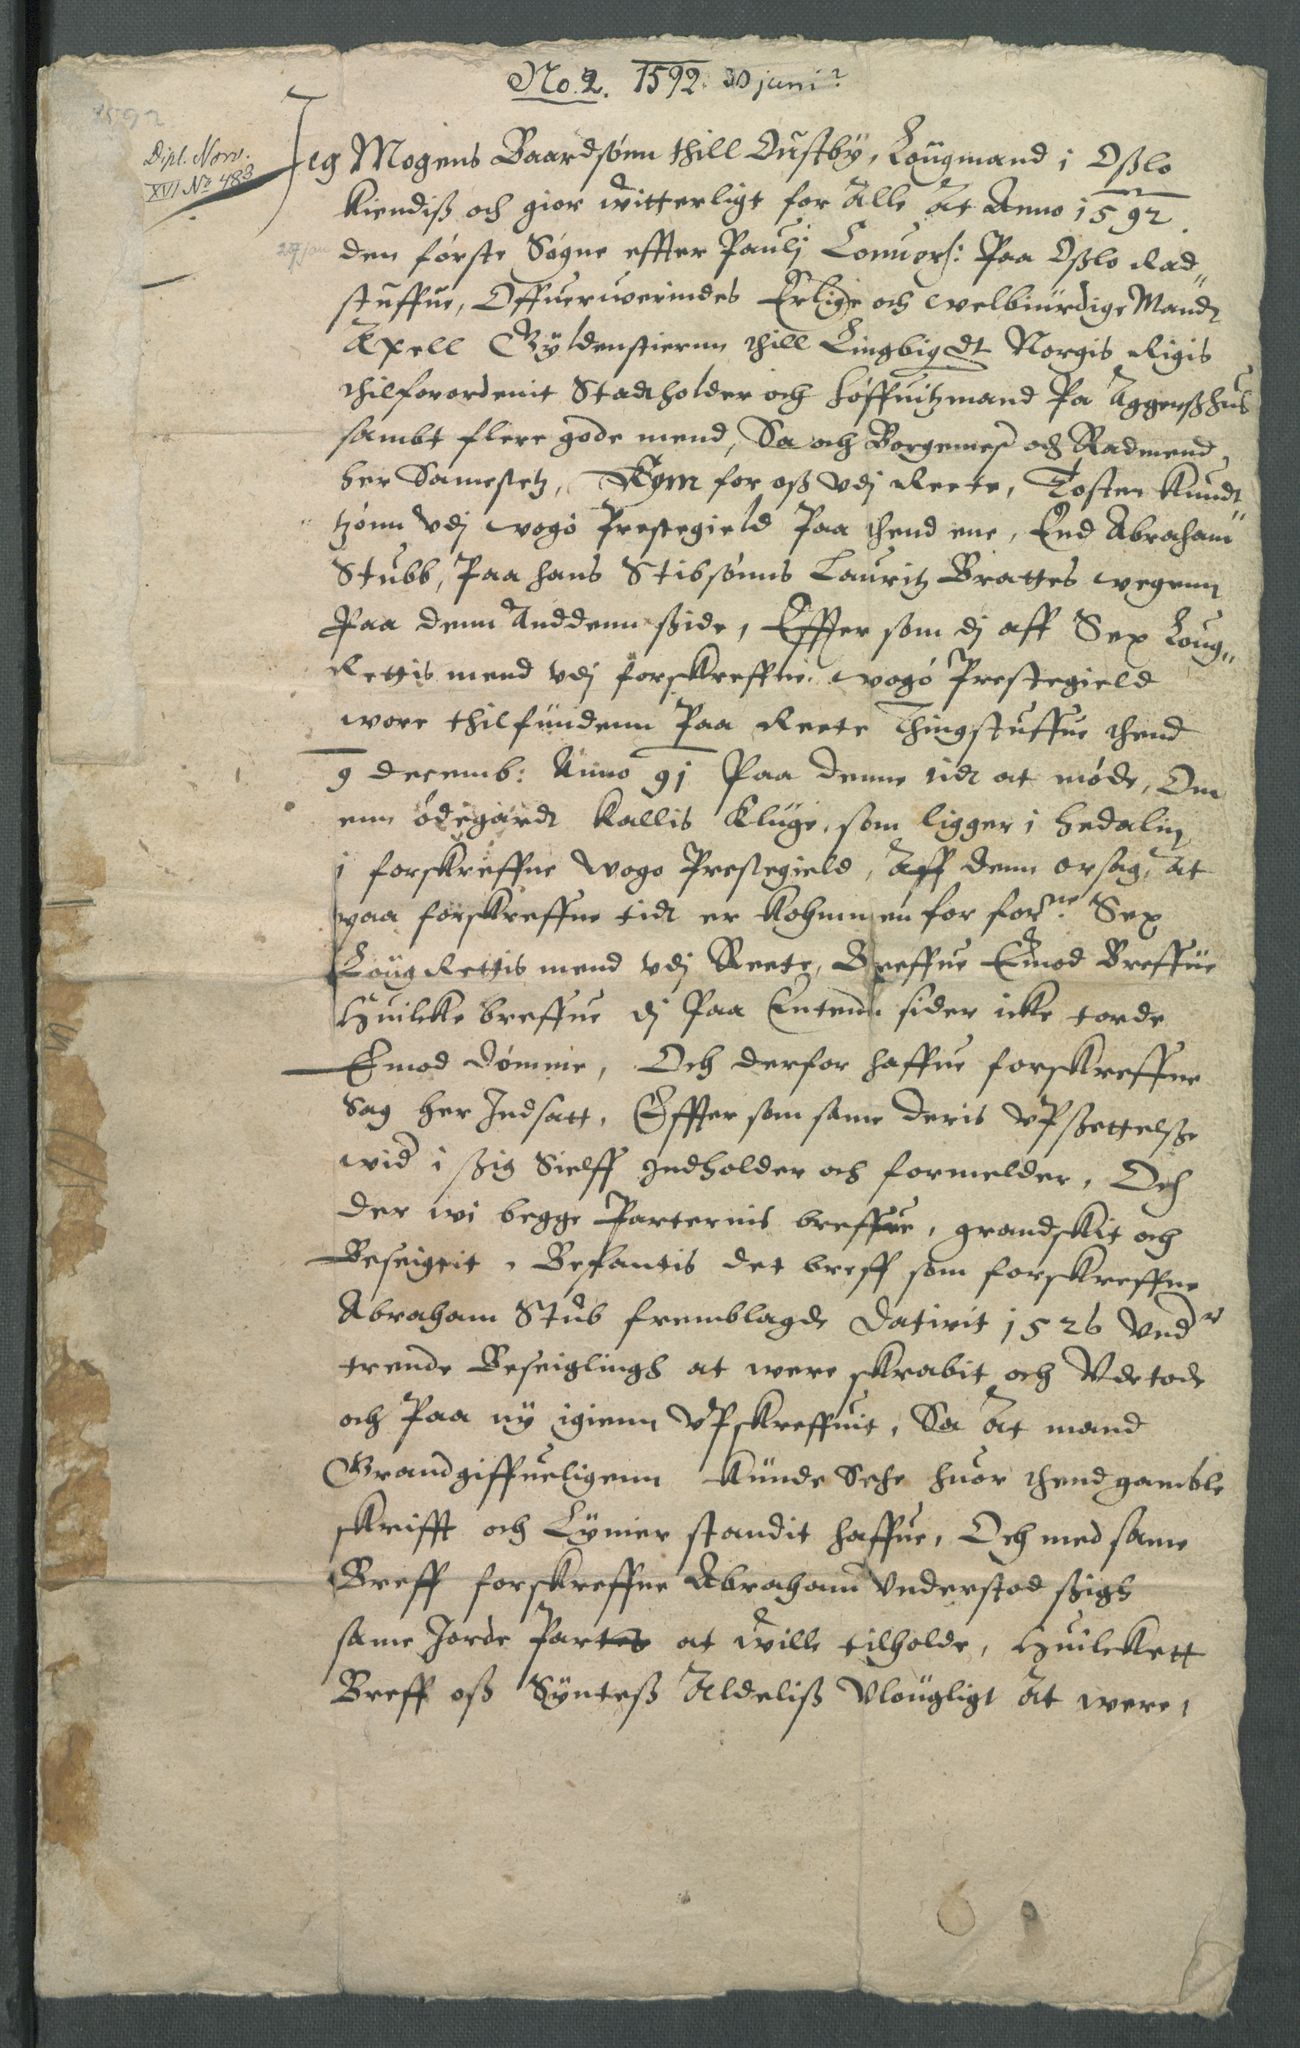 No. 2. 1592. 30 juni?
1592
Dipl. Norv.
XVI No 483
Jeg Mogens Baardsønn thill Oustby, Lougmand i Oßlo
kiendiß och giør witterligt for Alle At Anno 1592.
27 jan
den første Søgne effter Paulj Conuers: Paa Oßlo Rad„
stuffue, Offueruerindes Erlige och welbiurdige Mandt
Axell Gyldenstiernn thill Lingbigdt Norgis Rigis
thilforordenit Stadtholder och høffuitzmand Pa Aggerßhus
sambt flere gode mend, Sa och Borgemest och Radmend
her Samestetz, Kom for oß vdj Rette, Tosten Knudt„
tzønn vdj wogø Prestegield Paa thend ene, End Abraham
Stubb, Paa hans Stibsønns Lauritz Brattes wegenn
Paa denn Anddenn ßide, Effter som dj aff Sex Loug„
Rettis mend vdj forskreffne wogø Prestegield
wore thilfundenn Paa Rette Thingstuffue thend
9 decemb: Anno 91 Paa denne tidt at møde, Om
enn ødegardt kallis Kluge, som ligger i hedalin
i forskreffne wogø Prestegield, Aff denn orsag, At
paa forskreffne tidt er kohmmen for forne Sex
Loug Rettis mend vdj Rette, Breffue Emod Breffue
Huilcke breffue dj Paa Entenn sider icke torde
Emod dømme, Och derfor haffue forskreffne
Sag her Indsatt, Effter som same deris vPßettelße
wid i ßig Sielff Indholder och formelder, Och
der wi begge Parternis breffue, grandskit och
Beseigtit, Befantis det breff som forskreffne
Abraham Stub fremblagde Datirit 1526 Vnder
trende Beseiglingh at were skrabit och Vdetode
och Paa ny igienn vPskreffuit, Sa At mand
Grandgiffueligenn kunde Sehe huor thend gamble
skrifft och Lynier standit haffue, Och med same
Breff forskreffne Abraham Vnderstod ßigh
same Jorde Partes at wille tilholde, Huilckett
Breff oß Synteß Aldeliß Vlougligt At were,